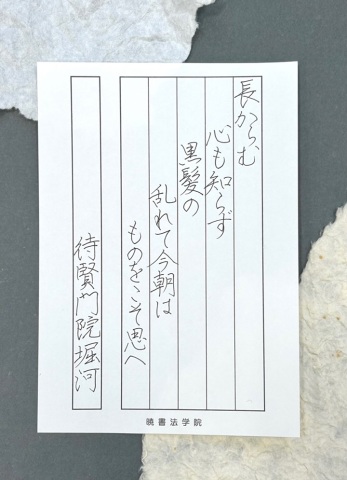 長からむ
心も知らず
黒髪の
乱れて今朝は
ものをこそ思へ
待賢門院堀河
暁書法学院